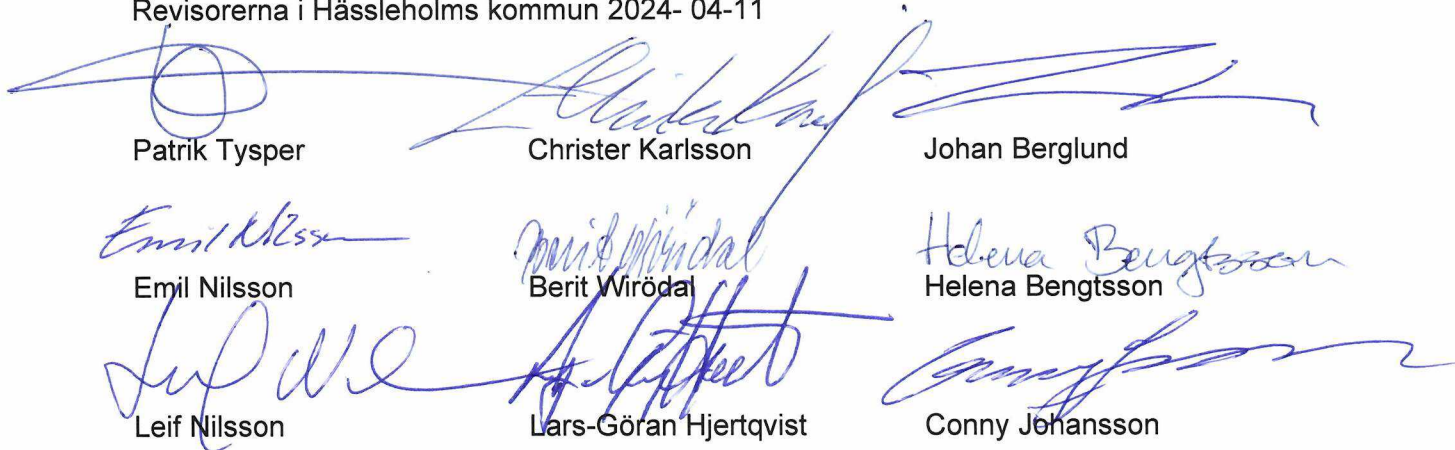 Revisorerna i Hässleholms kommun 2024- 04-11
Patrik Tysper Christer Karlsson Johan Berglund
Emil Nilsson Helena Bengtsson
Emil Nilsson Berit Wirödal Helena Bengtsson
Leif Nilsson Lars-Göran Hjertqvist Conny Johansson